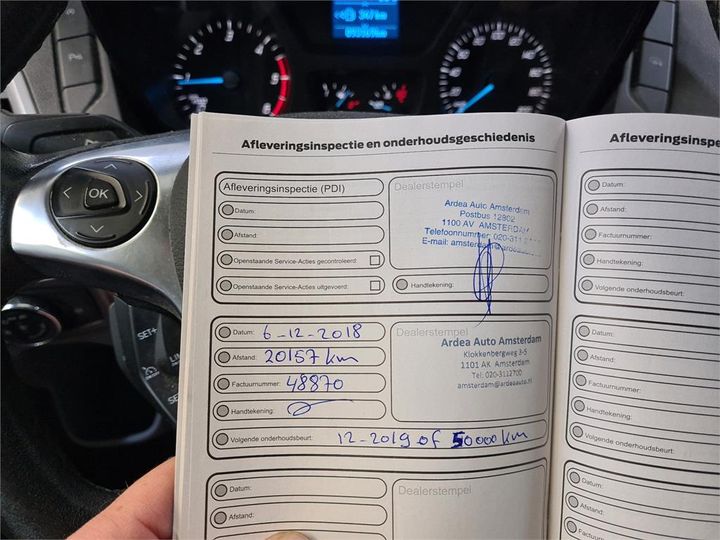 367 km
OK
SET+
Afleveringsinspectie en onderhoudsgeschiedenis
Afleveringsinspectie (PDI)
Datum:
Afstand:
Openstaande Service-Acties gecontroleerd:
Openstaande Service-Acties uitgevoerd:
Dealerstempel
Ardea Auto Amsterdam
Postbus 12802
1100 AV AMSTERDAM
Telefoonnummer: 020-311
E-mail: amsterdam@ardeaauto
Handtekening:
Datum: 6-12-2018
Afstand: 20157 km
Factuurnummer: 48870
Handtekening:
Volgende onderhoudsbeurt: 12-2019 of 50000km
Dealerstempel
Ardea Auto Amsterdam
Klokkenbergweg 3-5
1101 AK Amsterdam
Tel: 020-3112700
amsterdam@ardeaauto.nl
Datum:
Afstand:
Factuurnummer:
Dealerstempel
Afleveringsinspe
Datum:
Afstand:
Factuurnummer:
Handtekening:
Volgende onderhoudsbeurt:
Datum:
Afstand:
Factuurnummer:
Handtekening:
Volgende onderhoudsbeurt:
Datum:
Afstand:
Factuurnummer: